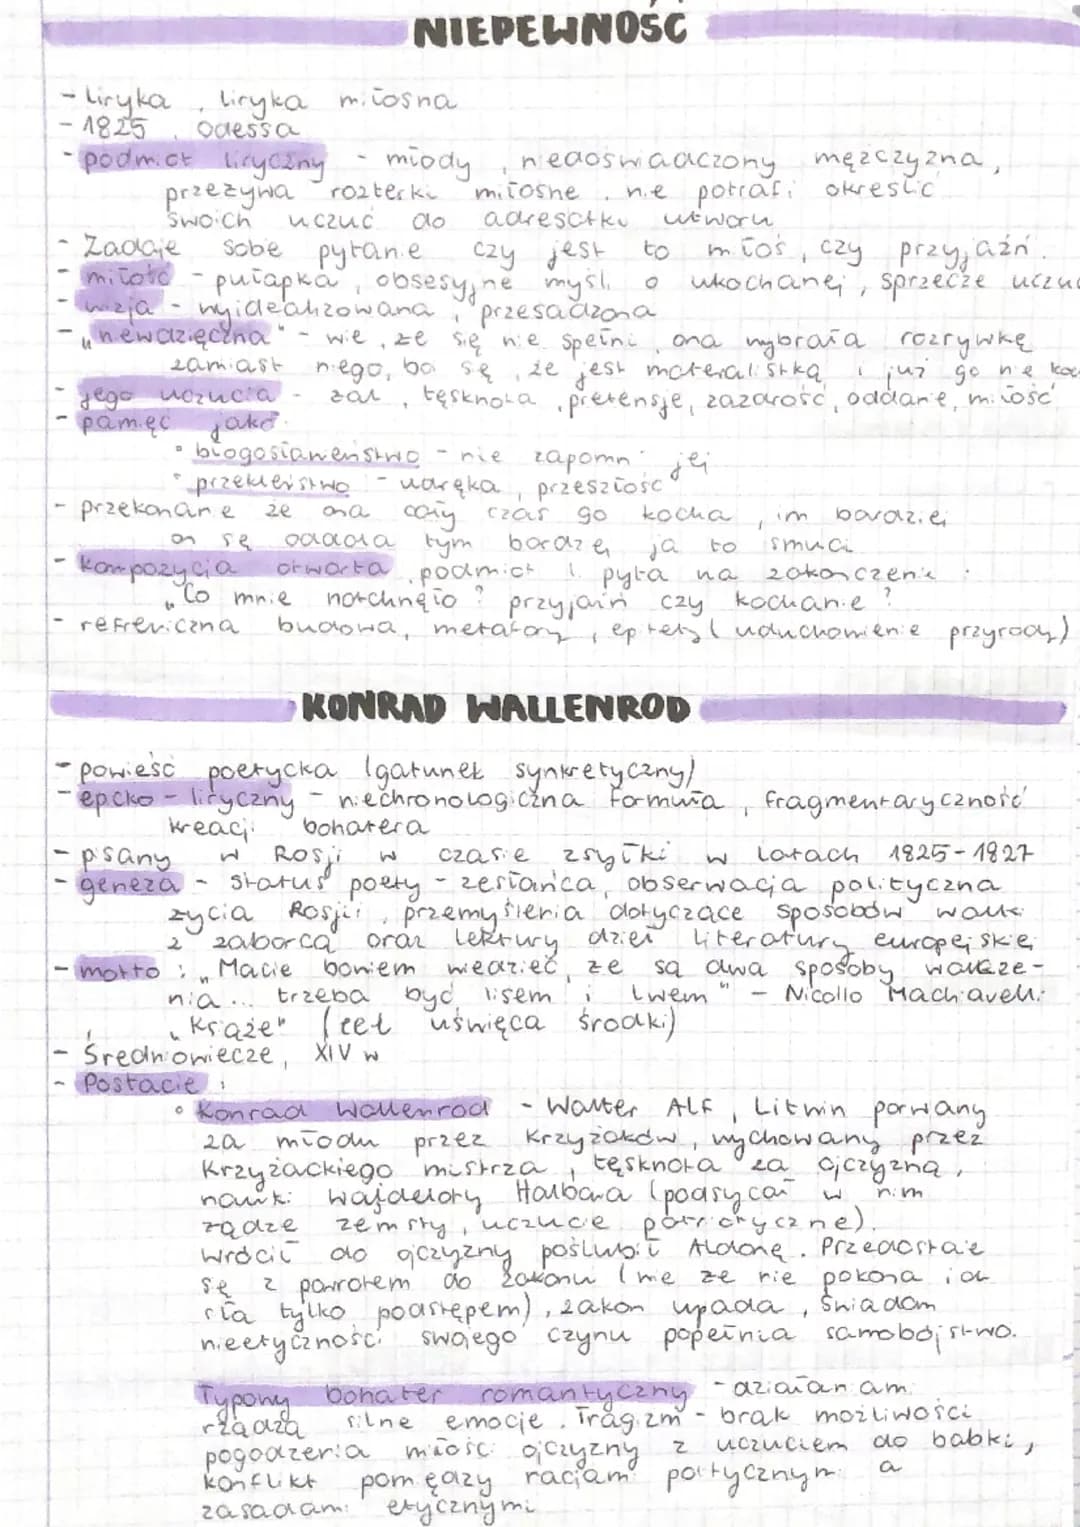 NIEPEWNOŚĆ
- liryka , liryka miłosna
- 1825 , Odessa
- podmiot liryczny - młody , niedoświadczony mężczyzna,
przeżywa rozterki miłosne , nie potrafi określić
swoich uczuć do adresatki utworu
- Zadaje sobie pytanie czy jest to miłoś, czy przyjaźń.
- miłość - pułapka , obsesyjne myśli o ukochanej , sprzecze uczuc
- wizja - wyidealizowana , przesadzona
- „niewdzięczna" - wie , że się nie spełni , ona wybrała rozrywkę
zamiast niego, boi się , że jest materialistką i już go nie koc
- jego uczucia - żal , tęsknota , pretensje, zazdrość, oddanie, miłość
- pamięć jako:
• błogosławieństwo - nie zapomni jej
• przekleństwo - udręka , przeszłość
- przekonanie że ona cały czas go kocha , im bardziej
on się oddala tym bardziej ja to smuci
- kompozycja otwarta , podmiot l. pyta na zakończenie :
„Co mnie natchnęło ? przyjaźń czy kochanie ?
- refreniczna budowa, metafory , epitety ( uduchowienie przyrody)
KONRAD WALLENROD
- powieść poetycka (gatunek synkretyczny)
- epicko - liryczny - niechronologiczna formuła , fragmentaryczność
kreacji bohatera
- pisany w Rosji w czasie zsyłki w latach 1825-1827
- geneza - status poety - zesłańca, obserwacja polityczna
życia Rosji , przemyślenia dotyczące sposobów walki
z zaborcą oraz lektury dzieł literatury europejskiej
- motto : „Macie bowiem wiedzieć, że są dwa sposoby walcze-
nia ... trzeba być lisem i lwem" - Nicollo Machiavelli
„Książe" (cel uświęca środki)
- Średniowiecze, XIV w
- Postacie :
• Konrad Wallenrod - Walter Alf , Litwin porwany
za młodu przez Krzyżaków , wychowany przez
Krzyżackiego mistrza , tęsknota za ojczyzną ,
nauki wajdeloty Halbana (podsycał w nim
żądze zemsty , uczucie patriotyczne).
Wrócił do ojczyzny poślubił Aldonę . Przedostaje
się z powrotem do Zakonu ( wie że nie pokona ich
siłą tylko podstępem) , zakon upada , świadom
nieetyczności swojego czynu popełnia samobójstwo.
Typowy bohater romantyczny - działaniami
rządzą silne emocje . Tragizm - brak możliwości
pogodzenia miłości ojczyzny z uczuciem do babki ,
konflikt pomiędzy racjami politycznymi a
zasadami etycznymi